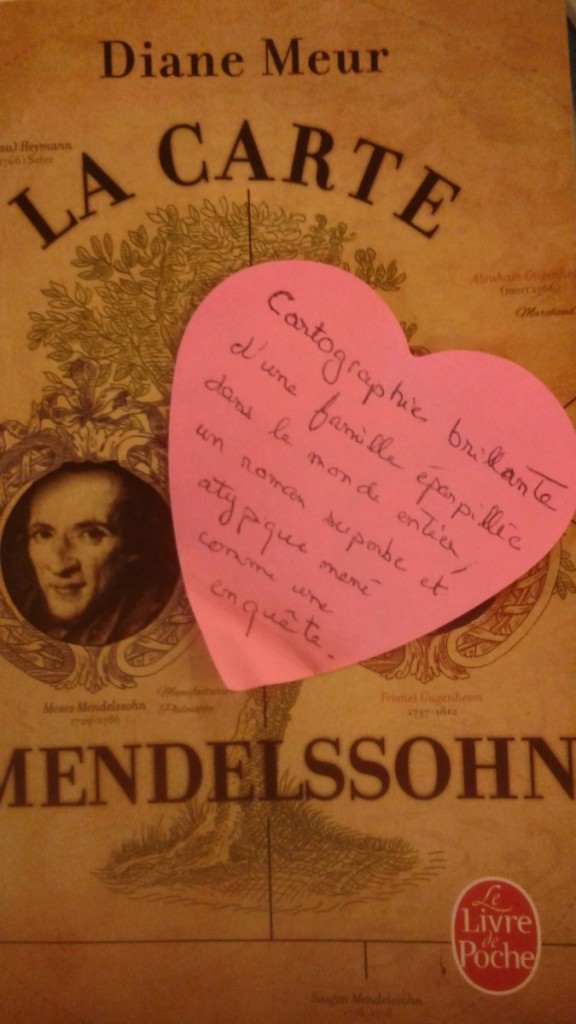 Diane Meur
Heymann
LA CARTE
Abraham Gugenheim
(mort 1766)
Marchand
Cartographie brillante
d'une famille éparpillée
dans le monde entier,
un roman superbe et
atypique mené
comme une
enquête.
Moses Mendelssohn
1729-1786
Fromet Gugenheim
1737-1812
MENDELSSOHN
Le
Livre
de
Poche
Mendelssohn